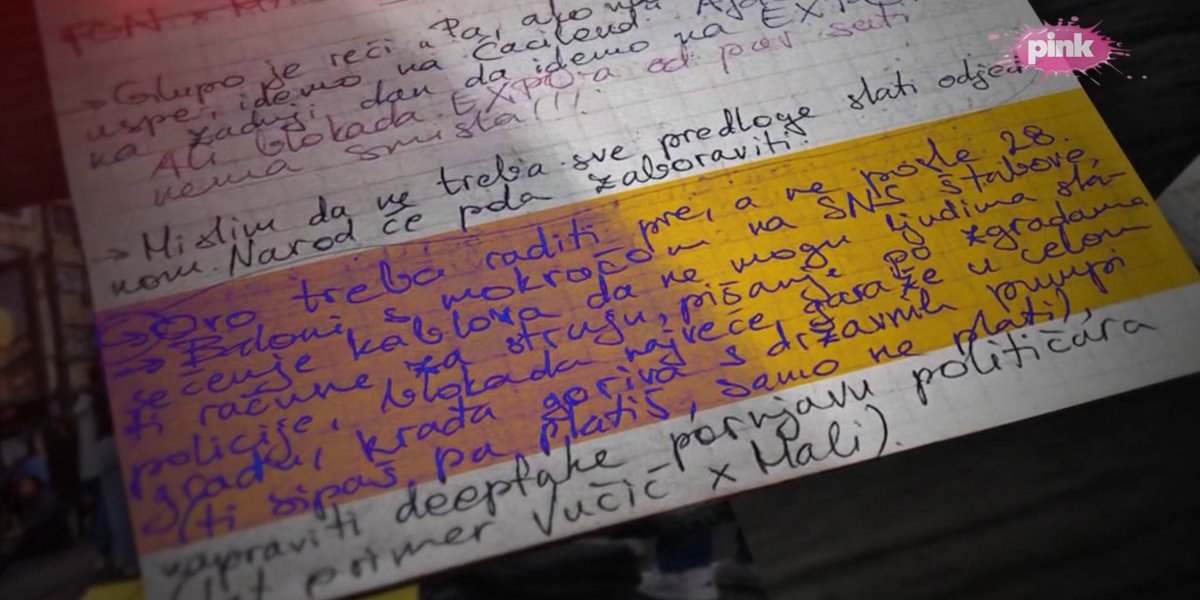 FON x
→ Glupo je reći "Pa, ako ne
uspe, idemo na Ćacilend.
zadnji dan da idemo na EXPO
Ali blokada EXPO-a od par sati
nema smisla!!!
→ Mislim da ne treba sve predloge slati
nom. Narod će pola zaboraviti.
→ Ovo treba raditi pre, a ne posle 28.
→ Baloni s mokraćom na SNS štabove,
sečenje kablova da ne mogu ljudima sla-
ti račune za struju, pišanje po zgradama
policije, blokada najveće garaže u celom
gradu, krađa goriva s državnih pumpi
(ti sipaš, pa platiš, samo ne plati),
napraviti deepfake pornjavu političara
primer Vučić x Mali).
pink